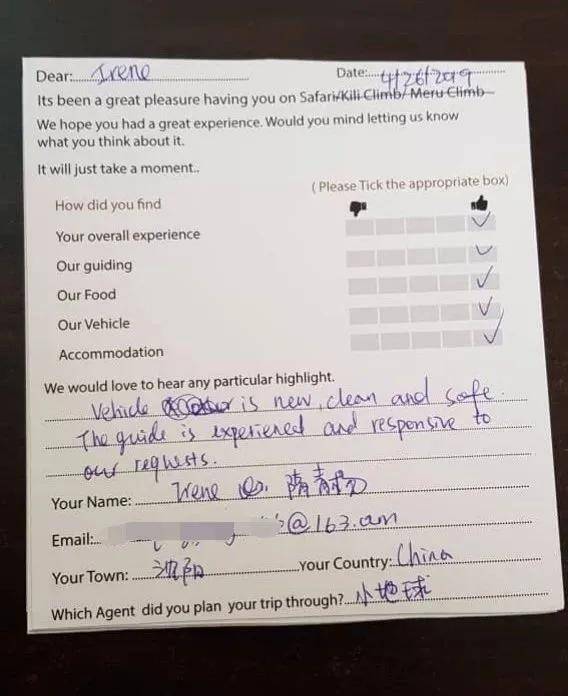 Dear: Irene
Date: 4/26/2019
Its been a great pleasure having you on Safari/Kili Climb/ Meru Climb
We hope you had a great experience. Would you mind letting us know
what you think about it.
It will just take a moment..
( Please Tick the appropriate box)
How did you find
Your overall experience
Our guiding
Our Food
Our Vehicle
Accommodation
We would love to hear any particular highlight.
Vehicle is new, clean and safe.
The guide is experiened and responsive to
our requests.
Your Name: Irene
Email: @163.com
Your Town: 沈阳 Your Country: China
Which Agent did you plan your trip through? 小地球